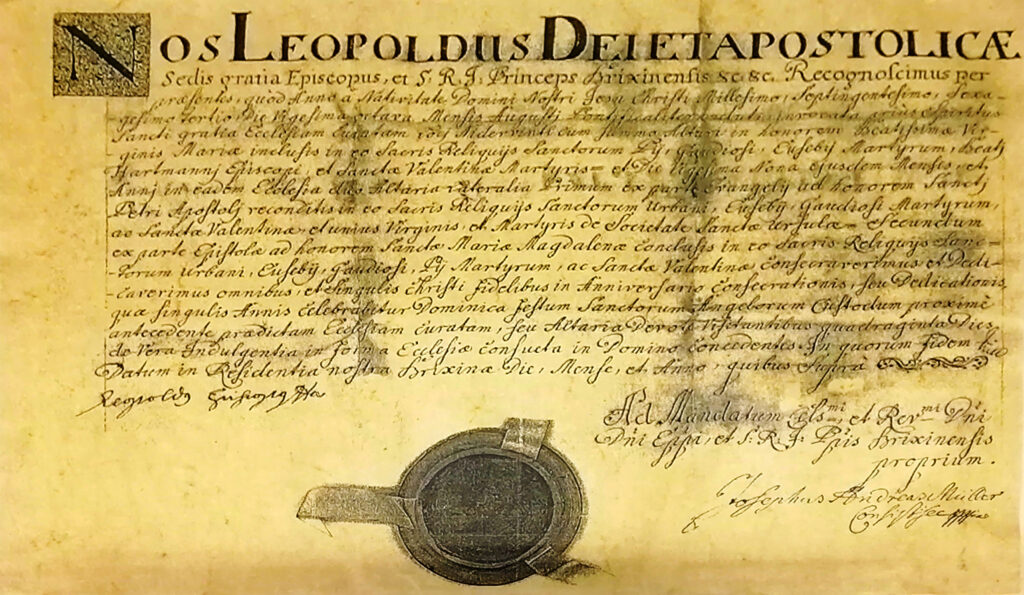 NOS LEOPOLDUS DEI ET APOSTOLICÆ
Sedis gratia Episcopus, et S. R. J. Princeps Brixinensis &c &c. Recognoscimus per
præsentes, quòd Anno à Nativitate Domini Nostri Jesu Christi Millesimo, Septingentesimo, Sexa-
gesimo tertio Die Vigesima octava Mensis Augusti Pontificaliter induti, invocata priùs Spiritus
Sancti gratia Ecclesiam curatam cum summo Altari in honorem Beatissimæ Vir-
ginis Mariæ inclusis in eo Sacris Reliquijs Sanctorum Pij, Gaudiosi, Eusebij Martyrum, Beatj
Hartmannj Episcopi, et Sanctæ Valentinæ Martyris= et Die Vigesima Nona ejusdem Mensis, et
Annj in eadem Ecclesia duo Altaria Lateralia Primum ex parte Evangelij ad honorem Sanctj
Petri Apostolj reconditis in eo Sacris Reliquijs Sanctorum Urbani, Eusebij, Gaudiosi Martyrum,
ac Sanctæ Valentinæ, et unius Virginis, et Martyris de Societate Sanctæ Ursulæ= Secundum
ex parte Epistolæ ad honorem Sanctæ Mariæ Magdalenæ conclusis in eo Sacris Reliquijs Sanc-
torum Urbani, Eusebij, Gaudiosi, Pij Martyrum, ac Sanctæ Valentinæ, Consecraverimus et Dedi-
caverimus omnibus, et Singulis Christi fidelibus in Anniversario Consecrationis, seu Dedicationis,
quæ singulis Annis Celebrabitur Dominica festum Sanctorum Angelorum Custodum proximè
antecedente prædictam Ecclesiam curatam, seu Altaria Devotè Visitantibus quadraginta Dies
de Vera Indulgentia in forma Ecclesiæ consueta in Domino Concedentes. In quorum fidem
Datum in Residentia nostra Brixinæ Die, Mense, et Anno, quibus Suprà
Leopoldus
Ad Mandatum Celsmi, et Revmi Dni
Dni Eppi, et S. R. J. Ppis Brixinensis
proprium.
Josephus Andreas Müller